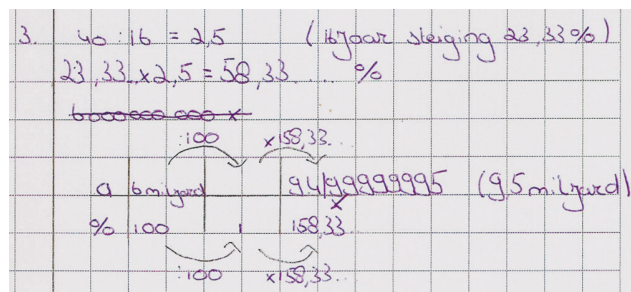 3. 40 : 16 = 2,5 (16 jaar steiging 23,33%)
23,33.. x 2,5 = 58,33.... %
6000 000 000 x
:100 x158,33..
a 6 miljard 9499999995 (9,5 miljard)
% 100 1 158,33..
:100 x158,33..